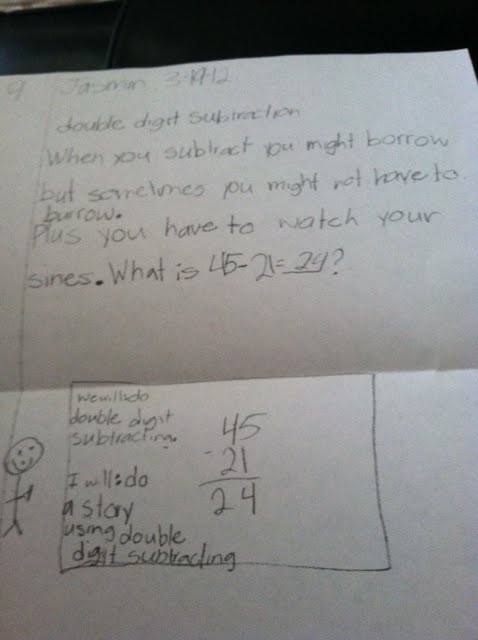 9 Jasmin 3-19-12
double digit subtraction
When you subtract you might borrow
but sometimes you might not have to
burrow.
Plus you have to watch your
sines. What is 45-21=24?
We will:do
double digit
subtracting.
I will:do
a story
using double
digit subtracting
45
-21
24